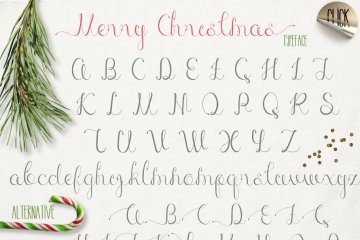 Merry Christmas
TYPEFACE
CLICK
A B C D E F G H I J
K L M N O P Q R S
T U V W X Y Z
abcdefghijklmnopqrstuvwxyz
ALTERNATIVE
A B C D E F G